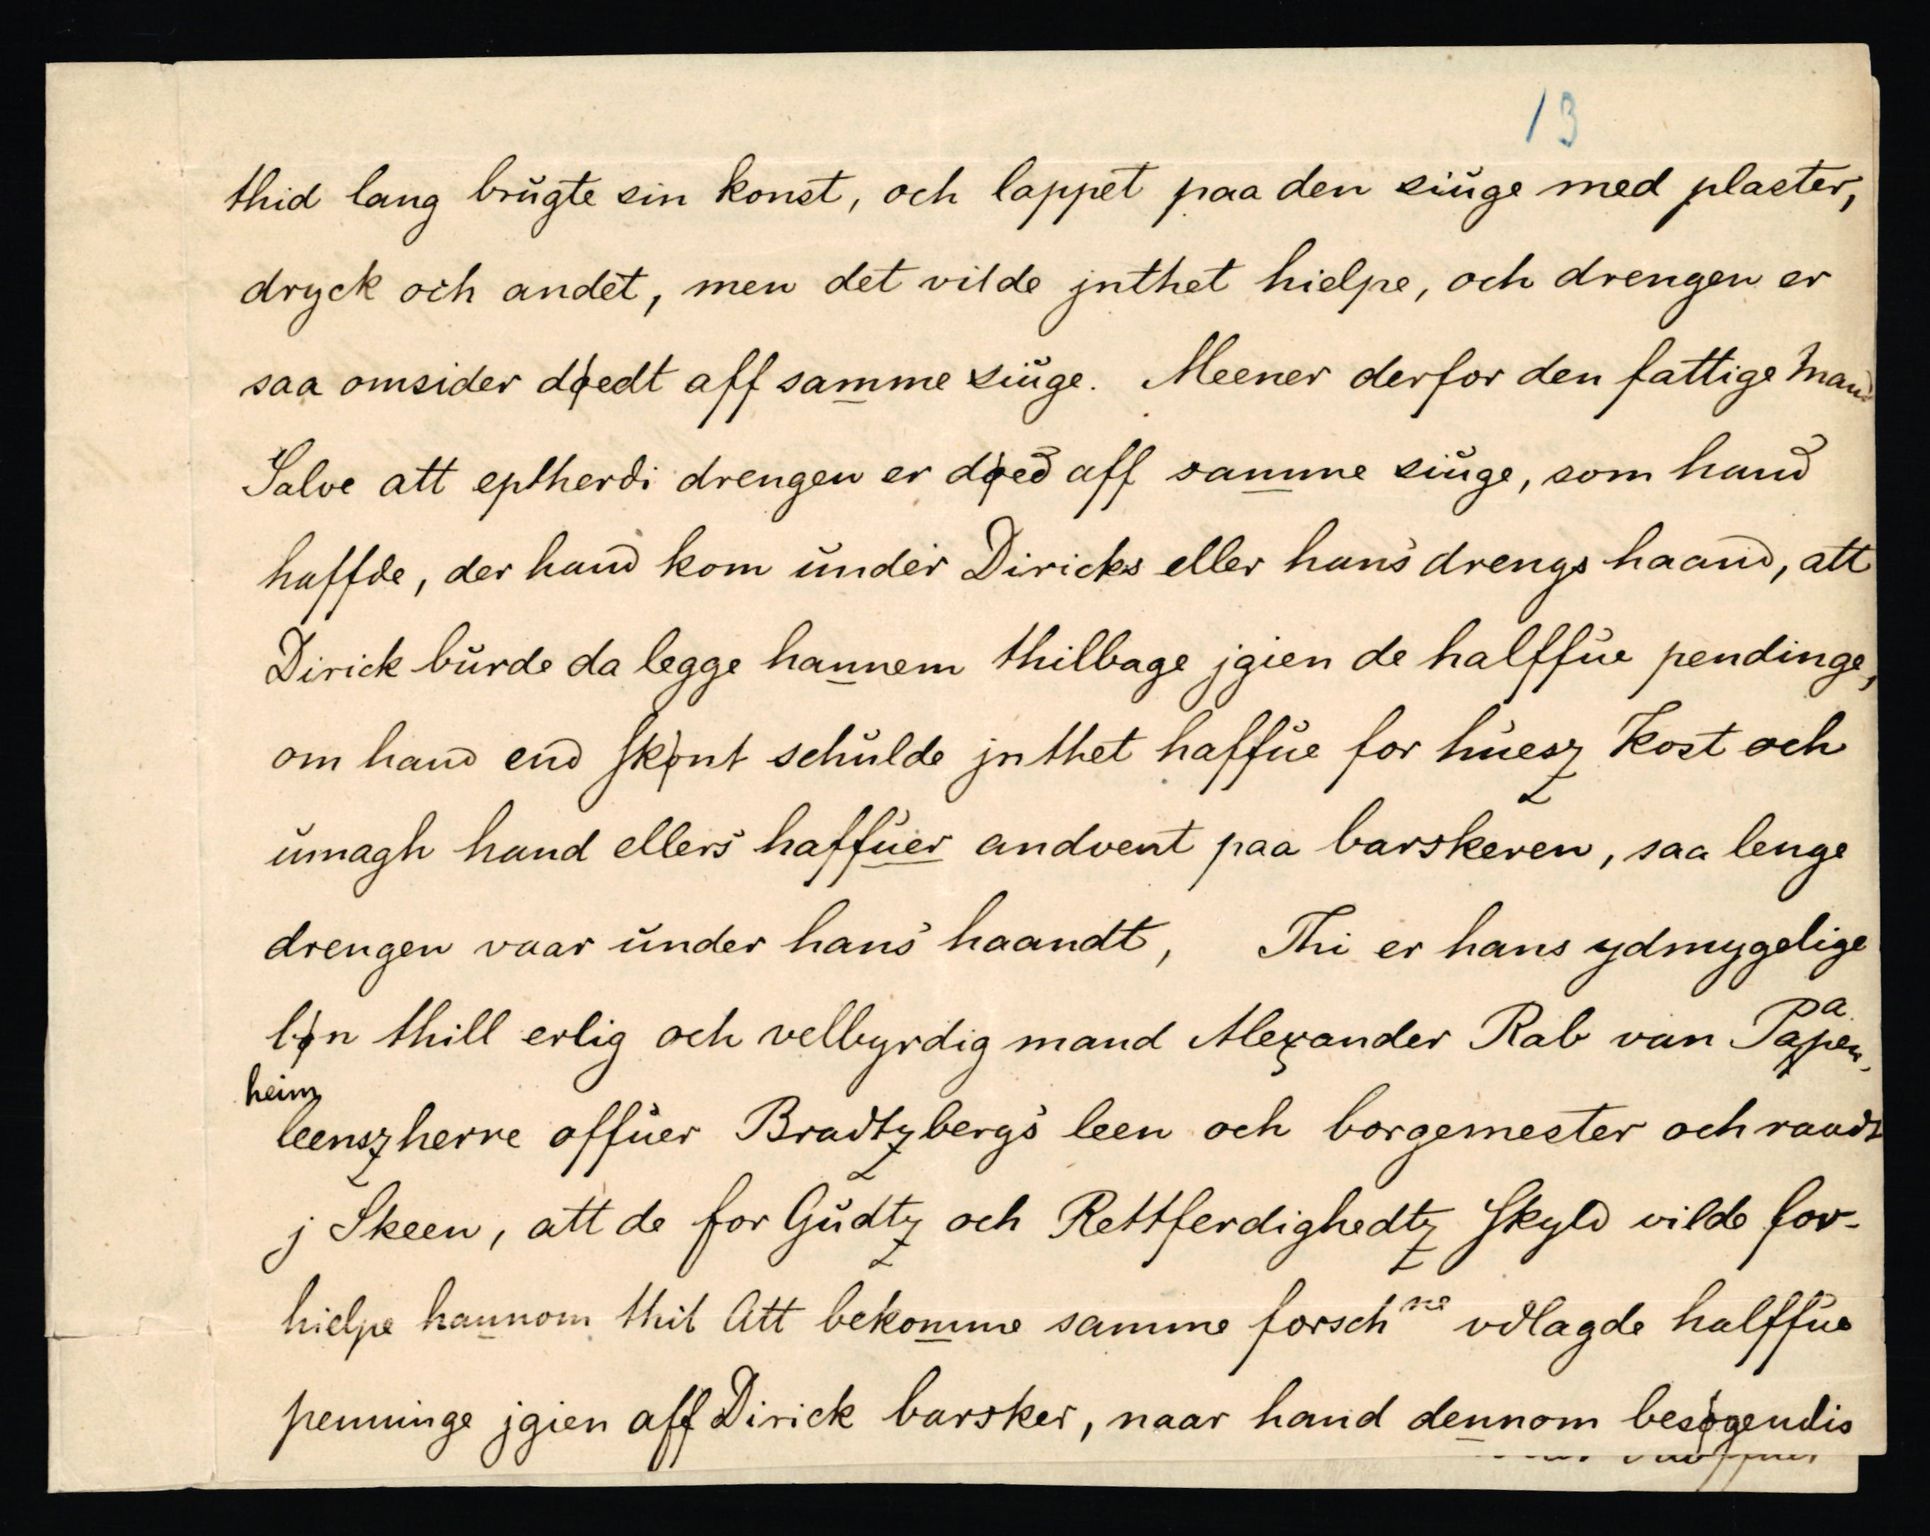 13
thid lang brugte sin konst, och lappet paa den siuge med plaster,
dryck och andet, men det vilde jnthet hielpe, och drengen er
saa omsider døedt aff samme siuge. Meener derfor den fattige mand
Salve att eptherdi drengen er døed aff samme siuge, som hand
haffde, der hand kom under Diricks eller hans drengs haand, att
Dirick burde da legge hannem thilbage jgien de halffue pendinge,
om hand end skønt schulde jnthet haffue for huesz kost och
umagh hand ellers haffuer andvent paa barskeren, saa lenge
drengen vaar under hans haandt, Thi er hans ydmygelige
bøn thill erlig och velbyrdig mand Alexander Rab van Papen-
heim
leenszherre offuer Bradtzbergs leen och borgemester och raadt
j Skeen, att de for Gudtz och Rettferdighedtz skyld vilde for-
hielpe hannom thil att bekomme samme forschne vdlagde halffue
penninge jgien aff Dirick barsker, naar hand dennom besøgendis